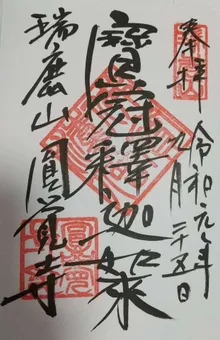 奉拝
令和元年九月二十五日
寶冠釋迦如来
瑞鹿山圓覚寺